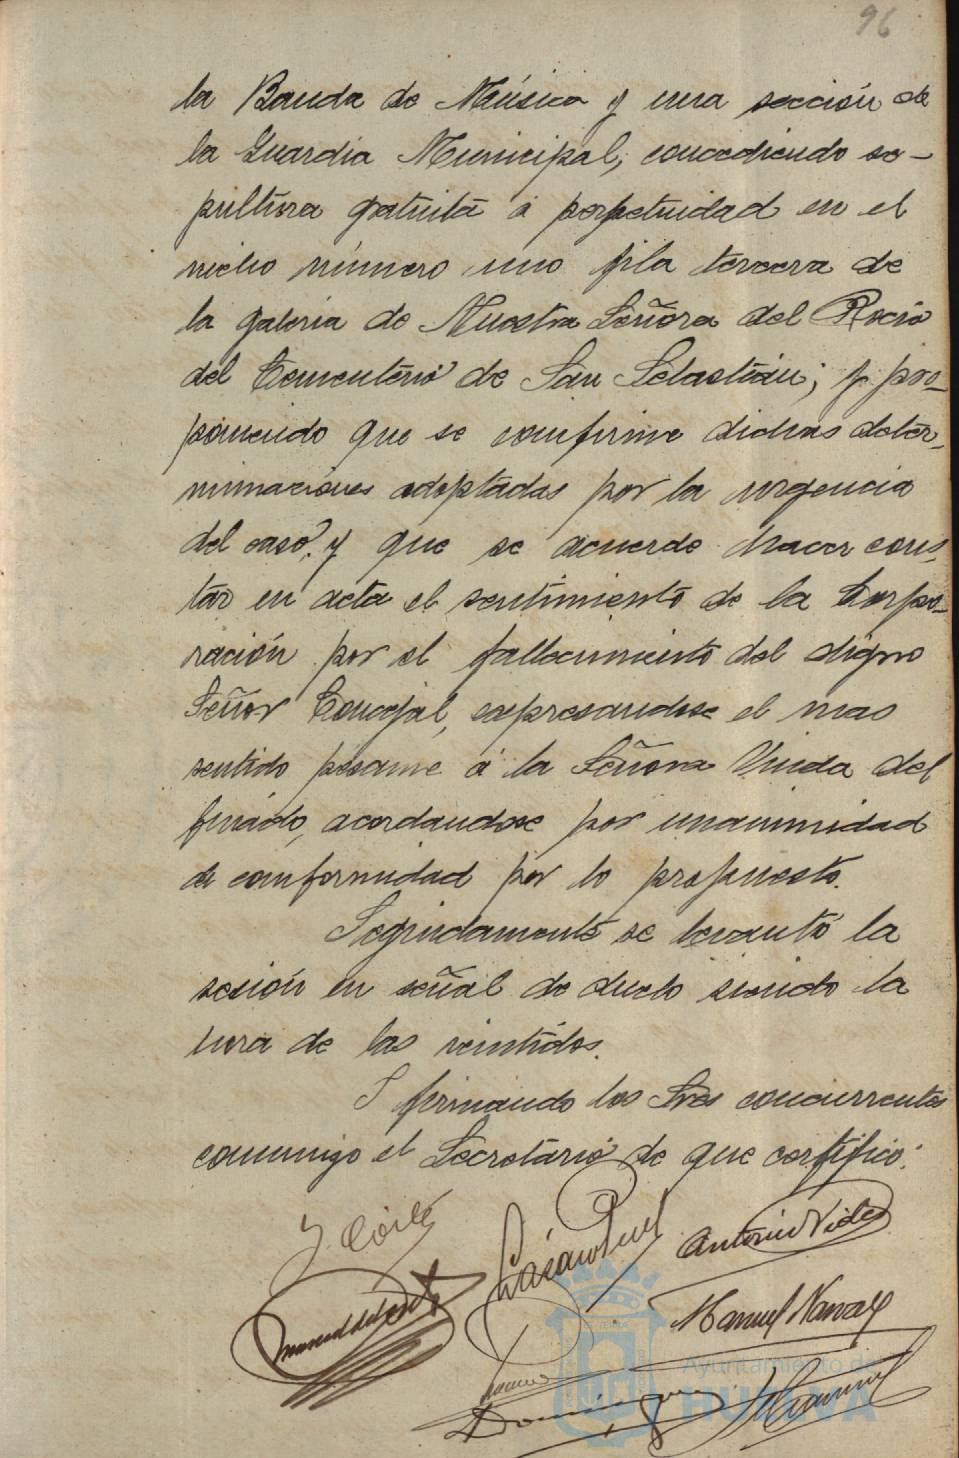 96
la Banda de Música y una sección de
la Guardia Municipal, concediendo se-
pultura gratuita á perpetuidad en el
nicho número uno fila tercera de
la galeria de Nuestra Señora del Rocio
del Cementerio de San Sebastián; y pro-
poniendo que se confirme dichas deter-
minaciones adoptadas por la urgencia
del caso, y que se acuerde hacer cons-
tar en acta el sentimiento de la Corpo-
ración por el fallecimiento del digno
Señor Concejal, expresandose el mas
sentido pésame á la Señora Viuda del
finado, acordandose por unanimidad
de conformidad por lo propuesto.
Seguidamente se levantó la
sesión en señal de duelo siendo la
hora de las veintidos.
I firmando los Sres concurrentes
conmigo el Secretario de que certifico.
Antonio Vides
Manuel
Dominguez
Ayuntamiento de
HUELVA